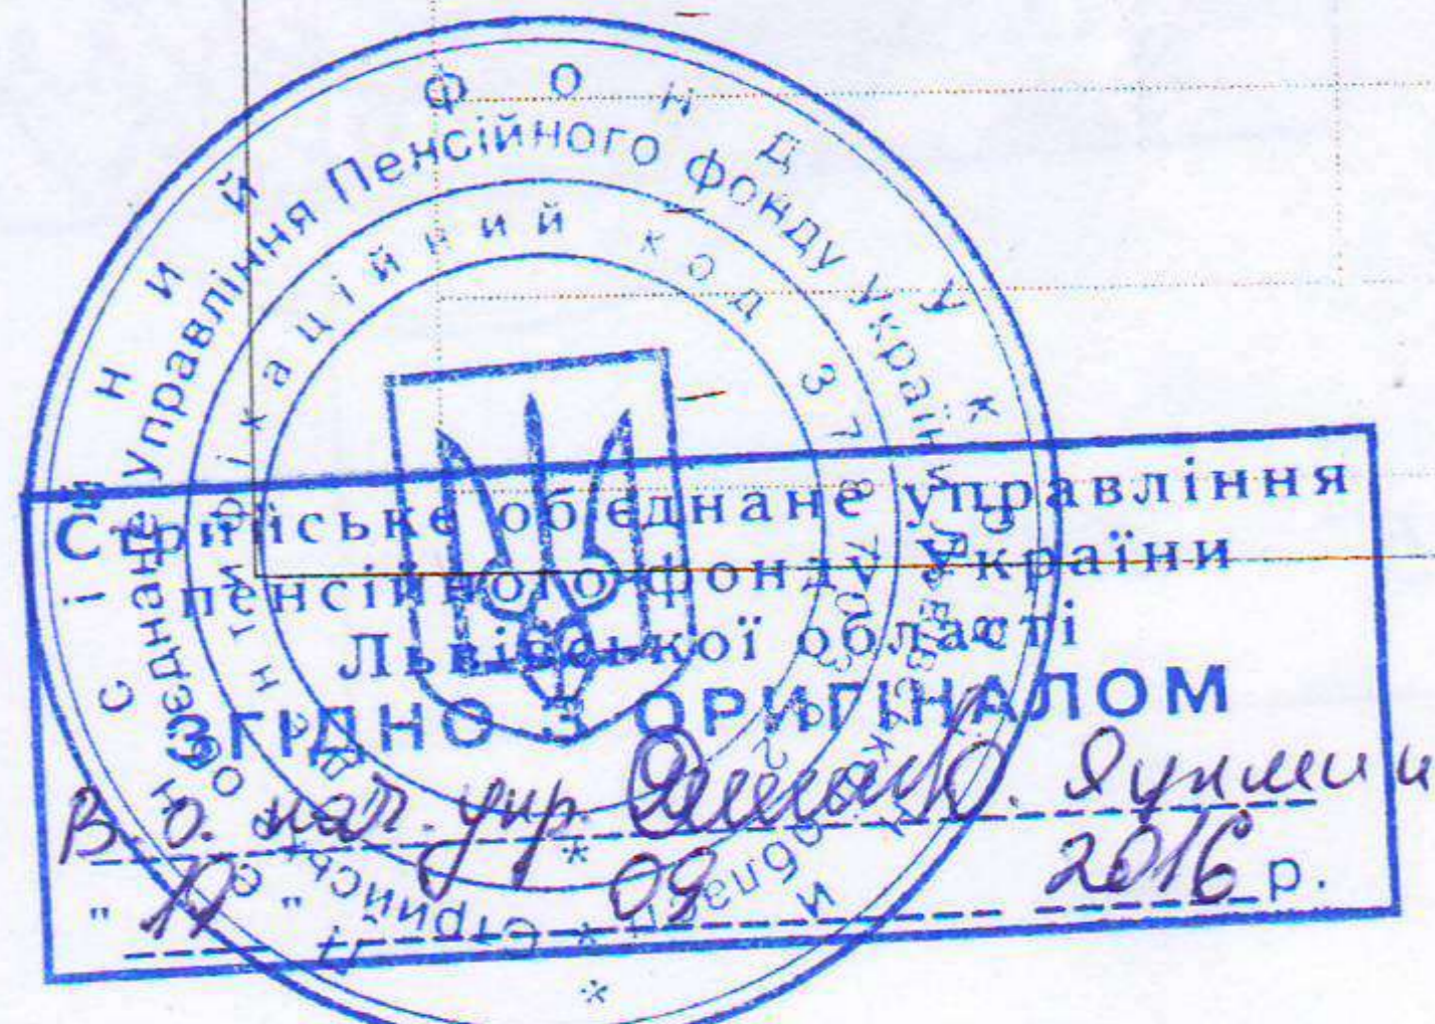 Пенсійний фонд Украї
Стрийське обєднане управління Пенсійного фонду України Львівської області
Ідентифікаційний код
Стрийське обєднане управління
пенсійного фонду України
Львівської області
ЗГІДНО З ОРИГІНАЛОМ
В. о. нач. упр.
" " 09 2016 р.